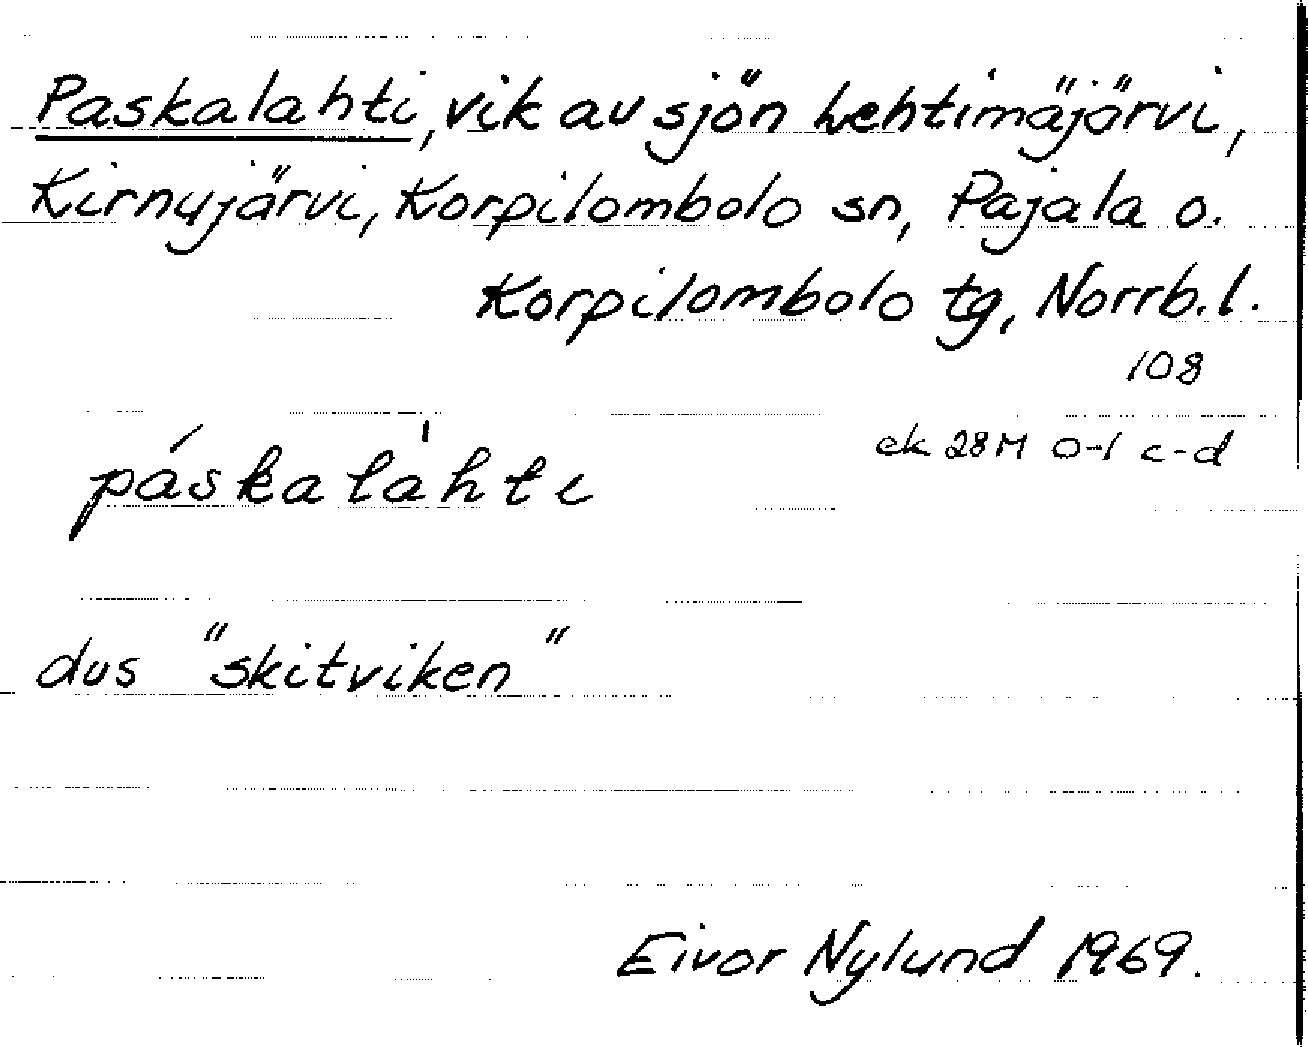 Paskalahti, vik av sjön Lehtimäjärvi,
Kirnujärvi, Korpilombolo sn, Pajala o.
Korpilombolo tg, Norrb.l.
108
ek 28M 0-1 c-d
páskalàhti
dvs "skitviken"
Eivor Nylund 1969.